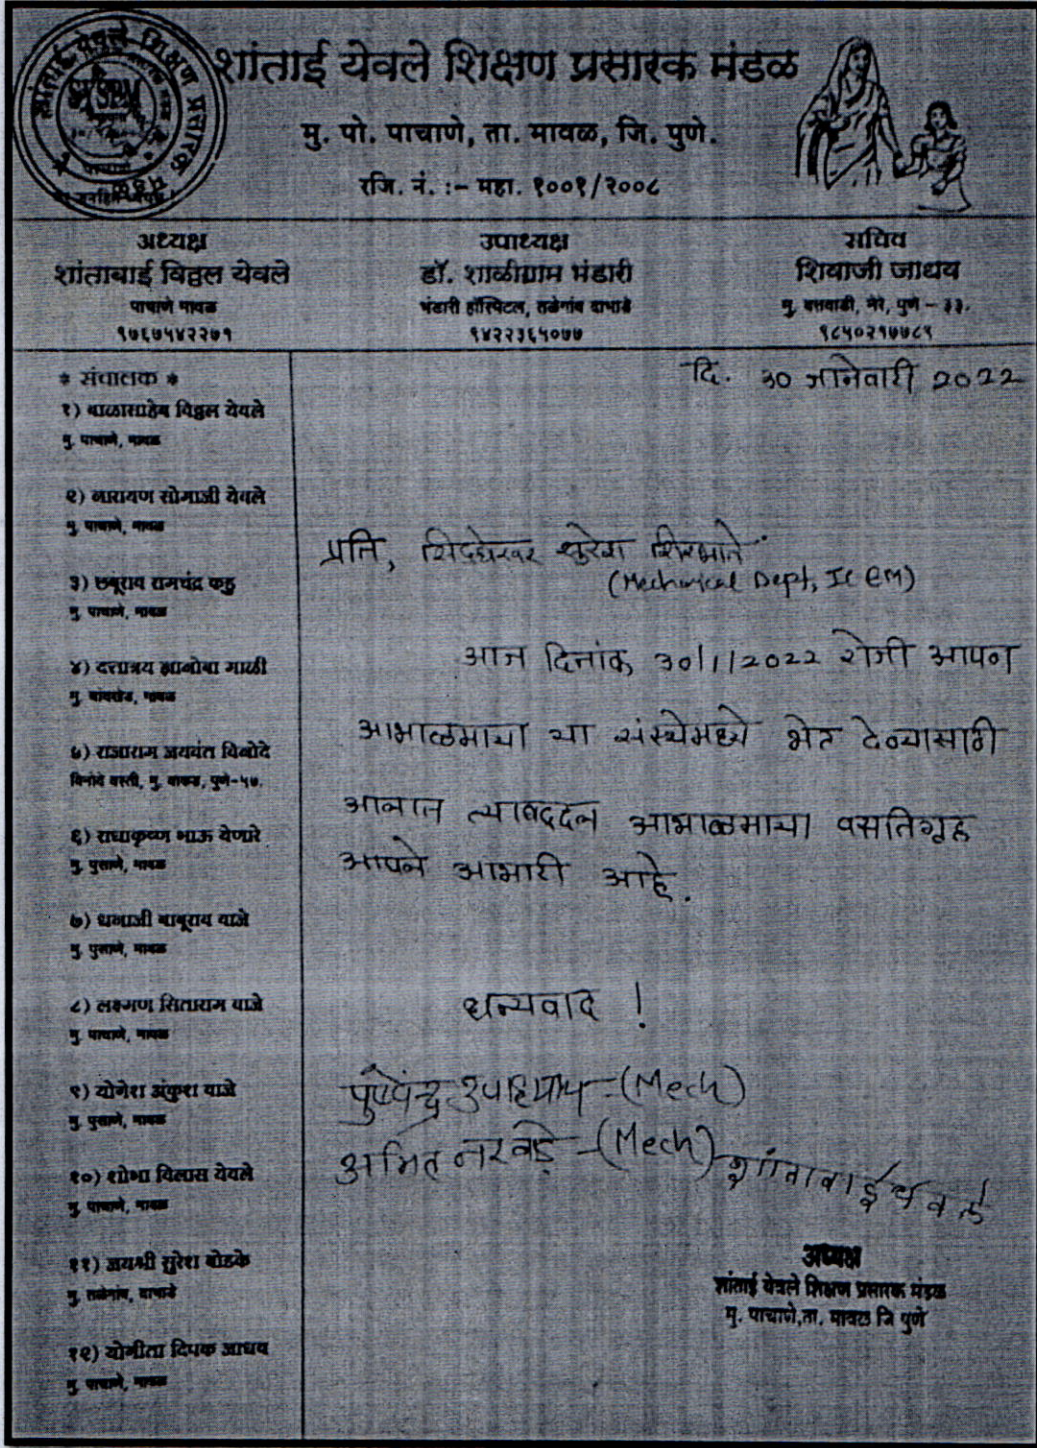 शांताई येवले शिक्षण प्रसारक मंडळ
मु. पो. पाचाणे, ता. मावळ, जि. पुणे.
रजि. नं. :- महा. १००१/२००८
अध्यक्ष
शांताबाई विठ्ठल येवले
पाचाणे मावळ
९७६७५४२२७१
उपाध्यक्ष
डॉ. शाळीग्राम भंडारी
भंडारी हॉस्पिटल, तळेगांव दाभाडे
९४२२३६५०७७
सचिव
शिवाजी जाधव
मु. नेरे, पुणे - ३३.
९८५०२१७७८९
* संचालक *
१) बाळासाहेब विठ्ठल येवले
मु. पाचाणे, मावळ
२) नारायण सोमाजी येवले
मु. पाचाणे, मावळ
३) छबुराव रामचंद्र कडु
मु. पाचाणे, मावळ
४) दत्तात्रय ज्ञानोबा माळी
मु. चांदखेड, मावळ
५) राजाराम जयवंत विनोदे
विनोदे वस्ती, मु. वाकड, पुणे-५७.
६) राधाकृष्ण भाऊ येणारे
मु. पुसाणे, मावळ
७) धनाजी बाबूराव वाजे
मु. पुसाणे, मावळ
८) लक्ष्मण सिताराम वाजे
मु. पाचाणे, मावळ
९) योगेश अंकुश वाजे
मु. पुसाणे, मावळ
१०) शोभा विलास येवले
मु. पाचाणे, मावळ
११) जयश्री सुरेश बोडके
मु. तळेगांव, दाभाडे
१२) योगीता दिपक जाधव
मु. पाचाणे, मावळ
दि. 30 जानेवारी 2022
प्रति, सिद्धेश्वर सुरेश
(Mechanical Dept, ICEM)
आज दिनांक 30/1/2022 रोजी आपण
आभाळमाया या संस्थेमध्ये भेट देण्यासाठी
आलात त्याबद्दल आभाळमाया वसतिगृह
आपले आभारी आहे.
धन्यवाद !
पुष्पेन्द्र उपाध्याय - (Mech)
अमित नरवडे - (Mech)
शांताबाई येवले
अध्यक्ष
शांताई येवले शिक्षण प्रसारक मंडळ
मु. पाचाणे,ता. मावळ जि पुणे